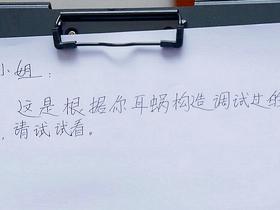 小姐：
这是根据你耳蜗构造调试过的
，请试试看。